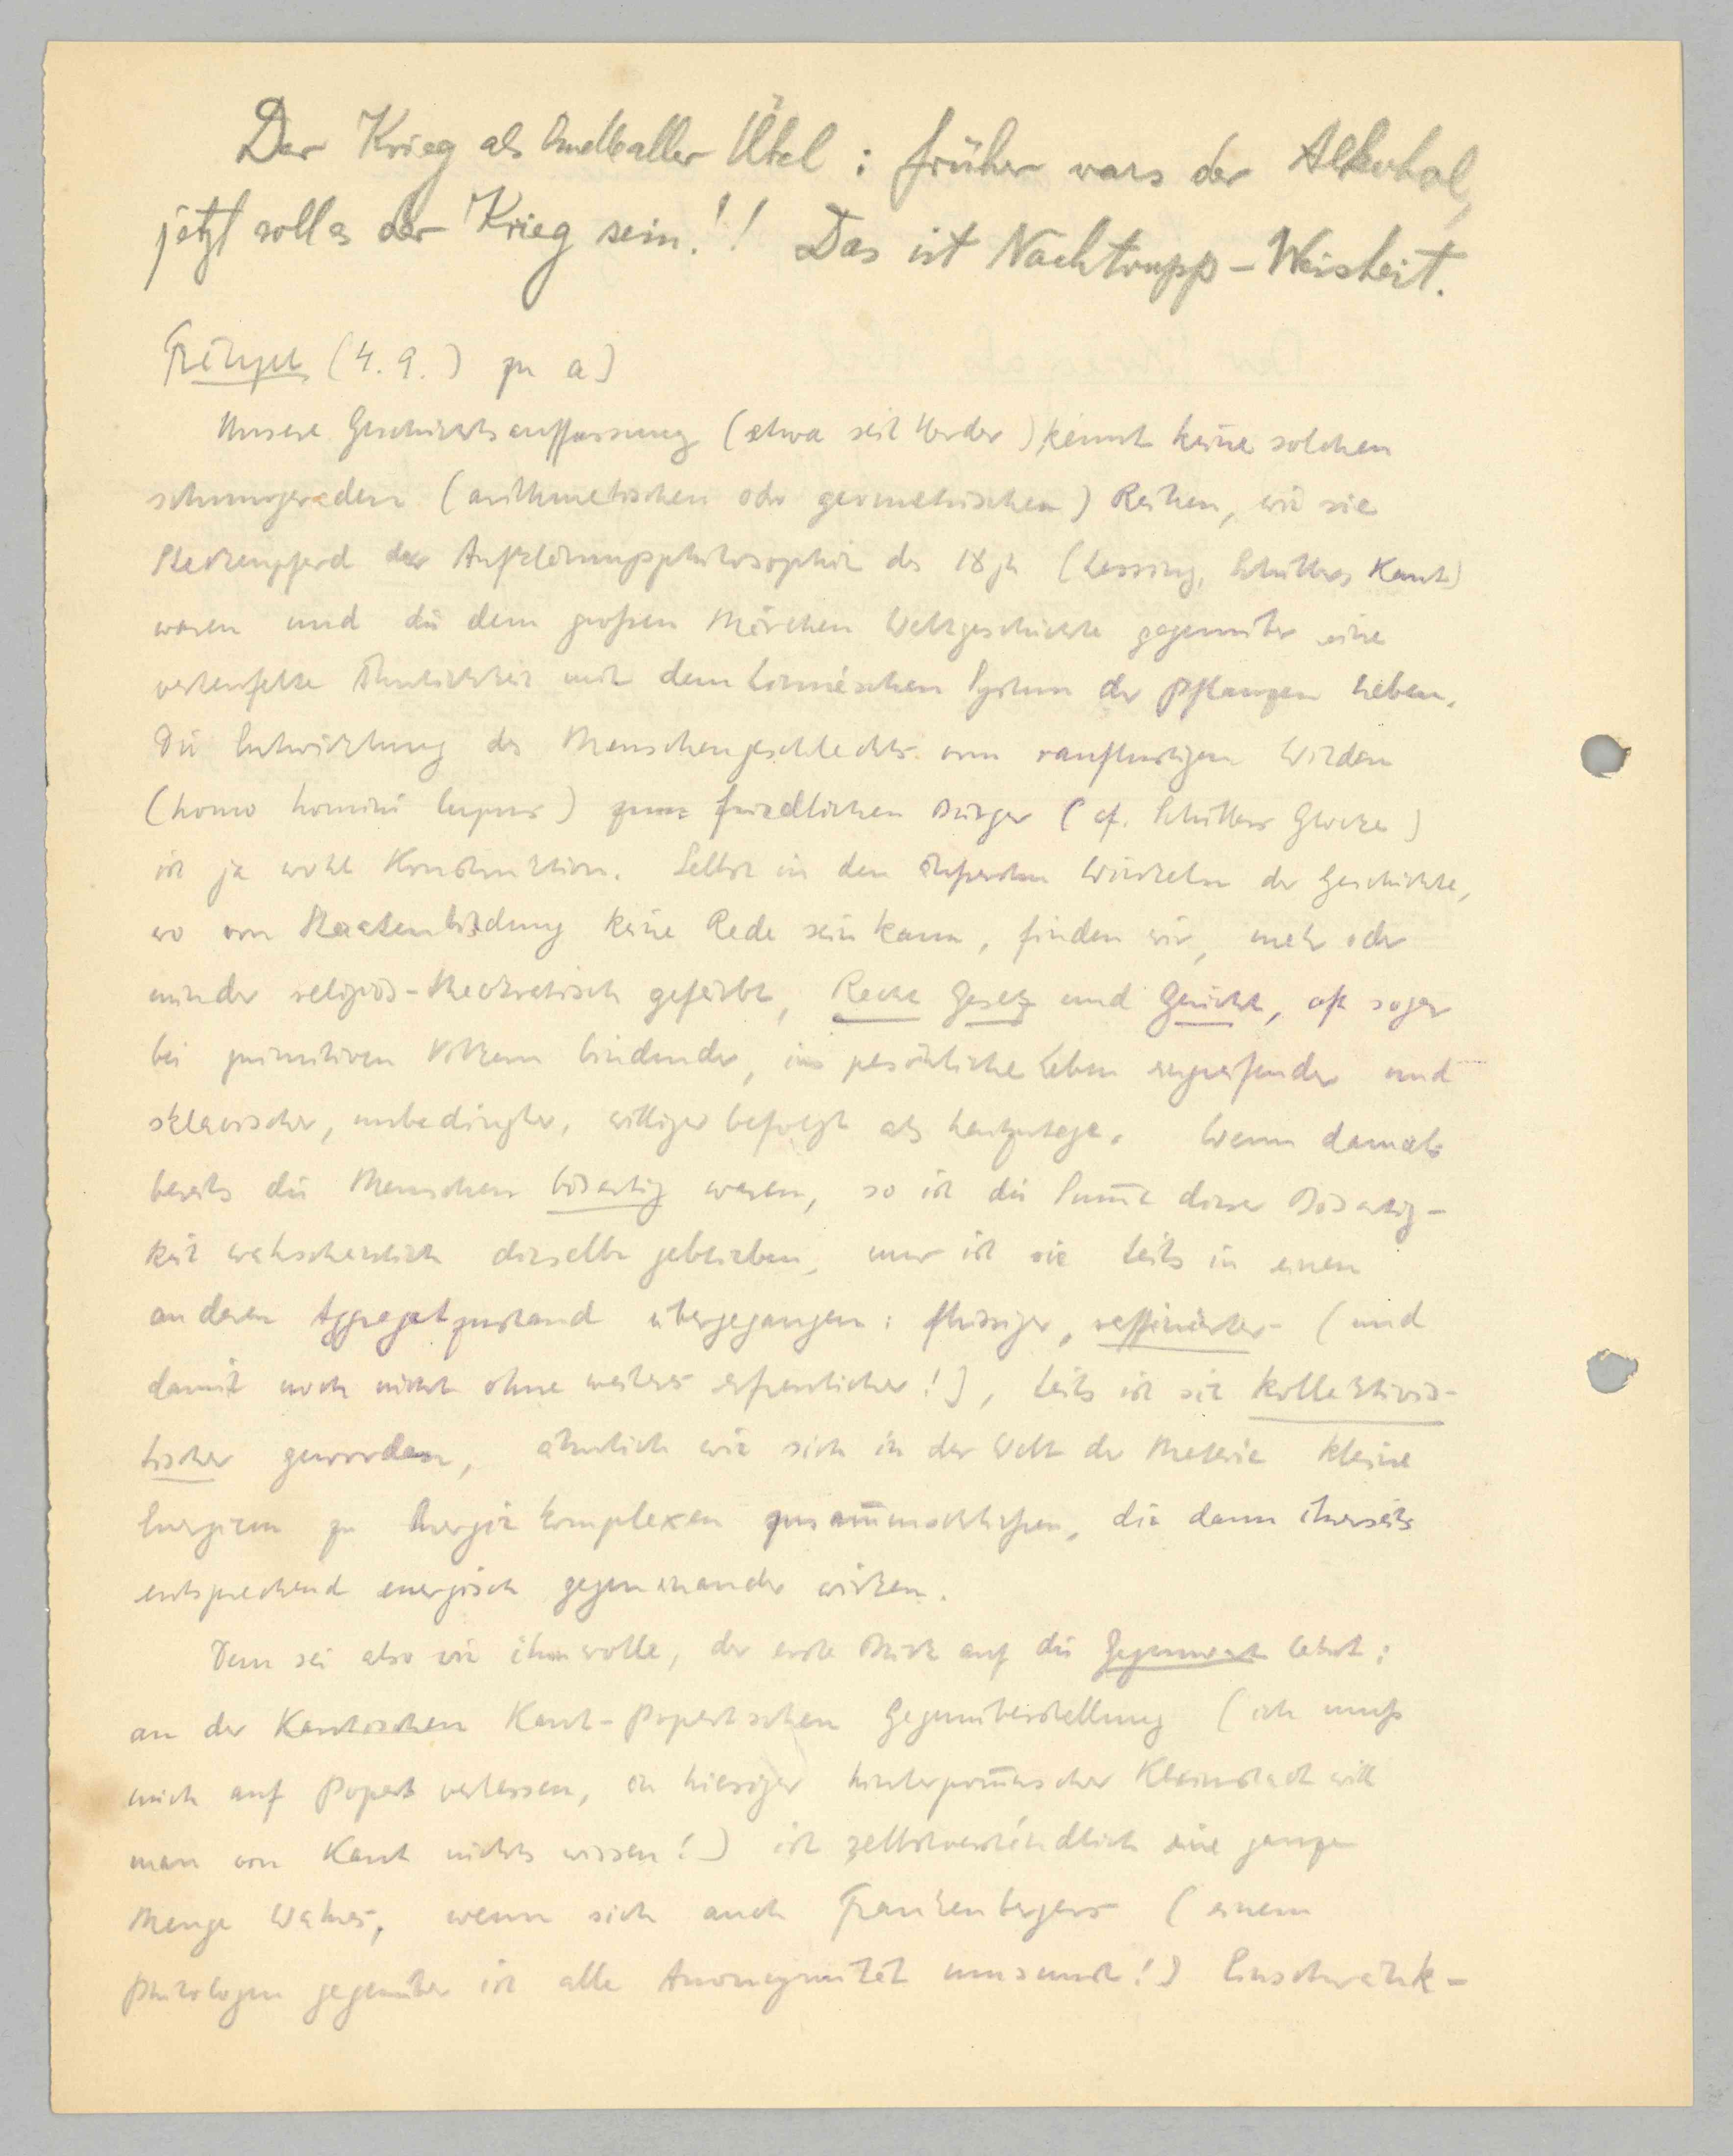 Der Krieg als Quelle aller Übel : früher wars der Alkohol,
jetzt soll es der Krieg sein!! Das ist Nachtrupp-Weisheit.
(4. 9.) zu a)
Unsere Geschichtsauffassung (etwa seit Herder) kennt keine solchen
schnurgeraden (arithmetischen oder geometrischen) Reihen, wie sie
Steckenpferd der Aufklärungsphilosophie des 18 Jh (Lessing, Schiller, Kant)
waren und die dem großen Märchen Weltgeschichte gegenüber eine
verteufelte Ähnlichkeit mit dem Linnéschen System der Pflanzen haben.
Die Entwicklung des Menschengeschlechts vom rauflustigen Wilden
(homo homini lupus) zum friedlichen Bürger (cf. Schillers Glocke)
ist ja wohl Konstruktion. Selbst in den äußersten Winkeln der Geschichte,
wo von Staatenbildung keine Rede sein kann, finden wir, mehr oder
minder religiös-theokratisch gefärbt, Recht Gesetz und Gericht, oft sogar
bei primitiven Völkern bindender, ins persönliche Leben eingreifender und
sklavischer, unbedingter, williger befolgt als heutzutage. Wenn damals
bereits die Menschen bösartig waren, so ist die Sum̅e dieser Bösartig-
keit wahrscheinlich dieselbe geblieben, nur ist sie teils in einen
anderen Aggregatzustand übergegangen: flüssiger, raffinierter (und
damit noch nicht ohne weiteres erfreulicher!), teils ist sie kollektivis-
tischer geworden, ähnlich wie sich in der Welt der Materie kleine
Energieen zu Energiekomplexen zusam̅enschließen, die dann ihrerseits
entsprechend energisch gegeneinander wirken.
Dem sei also wie ihm wolle, der erste Blick auf die Gegenwart lehrt:
an der Kantischen Kant-Popertschen Gegenüberstellung (ich muß
mich auf Popert verlassen, in hiesiger hinterpom̅erscher Kleinstadt will
man von Kant nichts wissen!) ist selbstverständlich eine ganze
Menge Wahres, wenn sich auch Frankenbergers (einem
Philologen gegenüber ist alle Anonymität umsonst!) Einschränk-